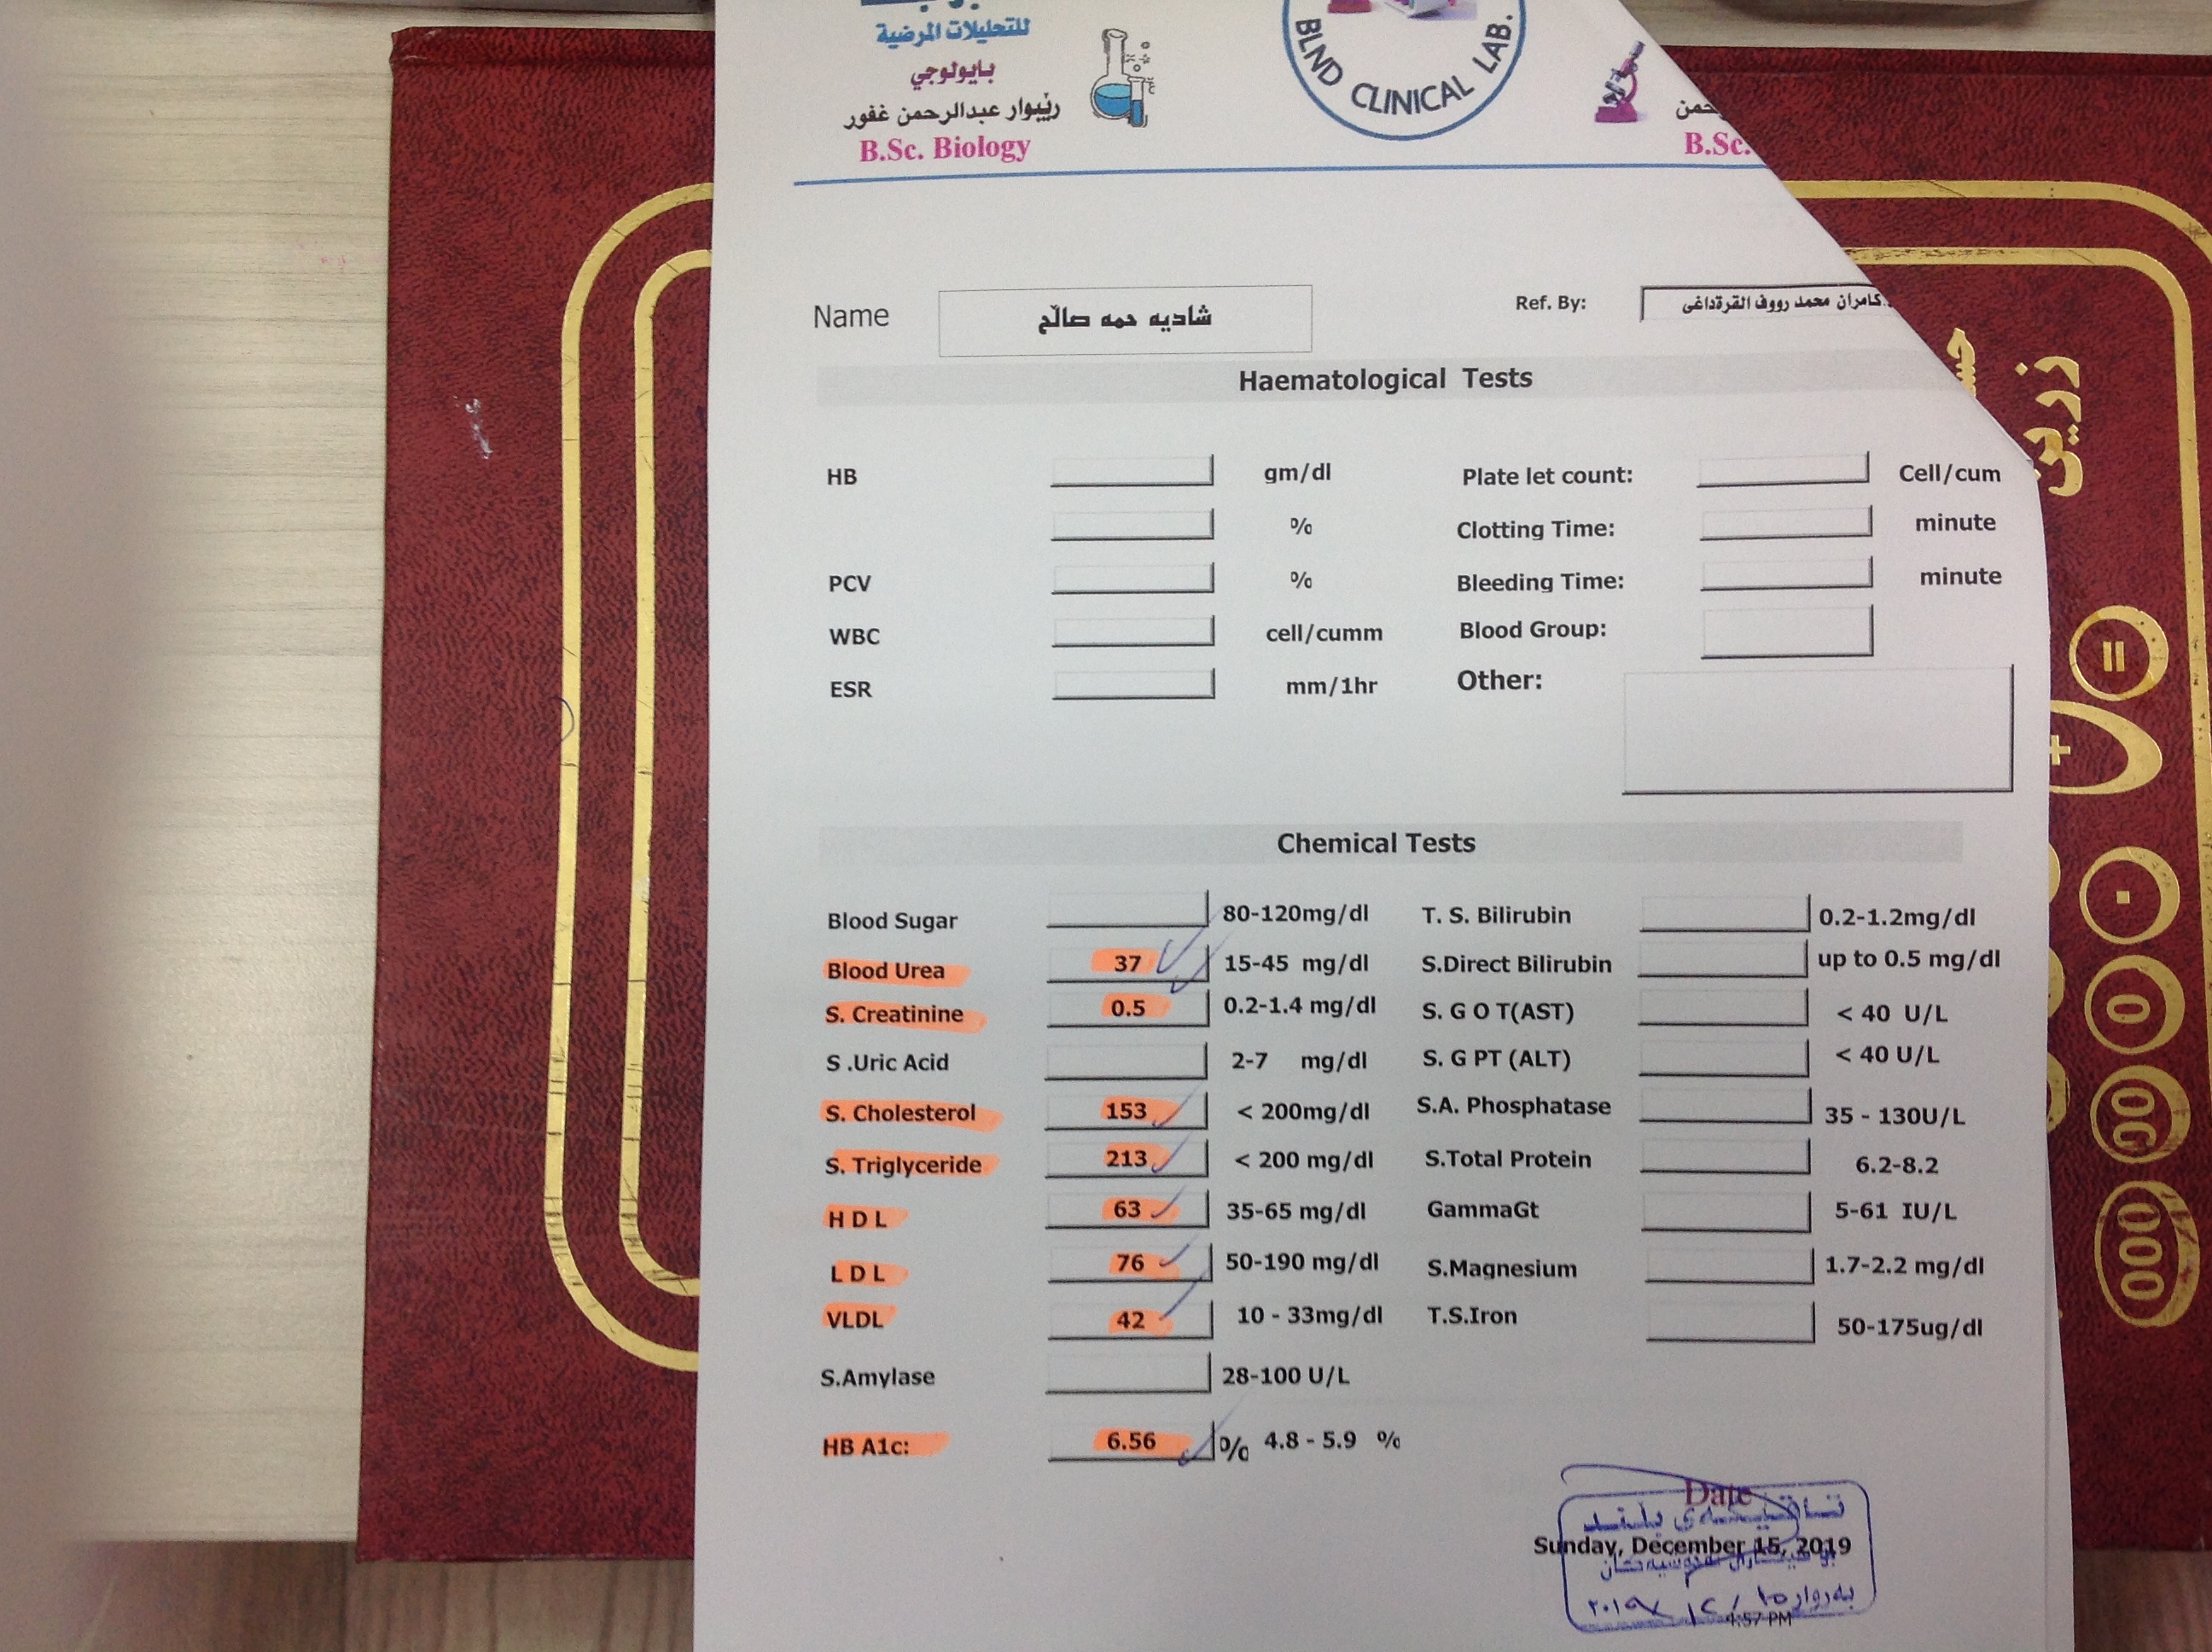 للتحليلات المرضية
بايولوجي
ريبوار عبدالرحمن غفور
B.Sc. Biology
BLND CLINICAL LAB.
B.Sc.
Name شاديه حمه صالح
Ref. By: كامران محمد رووف القرةداغى
Haematological Tests
HB gm/dl Plate let count: Cell/cum
% Clotting Time: minute
PCV % Bleeding Time: minute
WBC cell/cumm Blood Group:
ESR mm/1hr Other:
Chemical Tests
Blood Sugar 80-120mg/dl T. S. Bilirubin 0.2-1.2mg/dl
Blood Urea 37 15-45 mg/dl S.Direct Bilirubin up to 0.5 mg/dl
S. Creatinine 0.5 0.2-1.4 mg/dl S. G O T(AST) < 40 U/L
S .Uric Acid 2-7 mg/dl S. G PT (ALT) < 40 U/L
S. Cholesterol 153 < 200mg/dl S.A. Phosphatase 35 - 130U/L
S. Triglyceride 213 < 200 mg/dl S.Total Protein 6.2-8.2
H D L 63 35-65 mg/dl GammaGt 5-61 IU/L
L D L 76 50-190 mg/dl S.Magnesium 1.7-2.2 mg/dl
VLDL 42 10 - 33mg/dl T.S.Iron 50-175ug/dl
S.Amylase 28-100 U/L
HB A1c: 6.56 % 4.8 - 5.9 %
Date
Sunday, December 15, 2019
4:57 PM
زرين
=
+
.
0
00
000